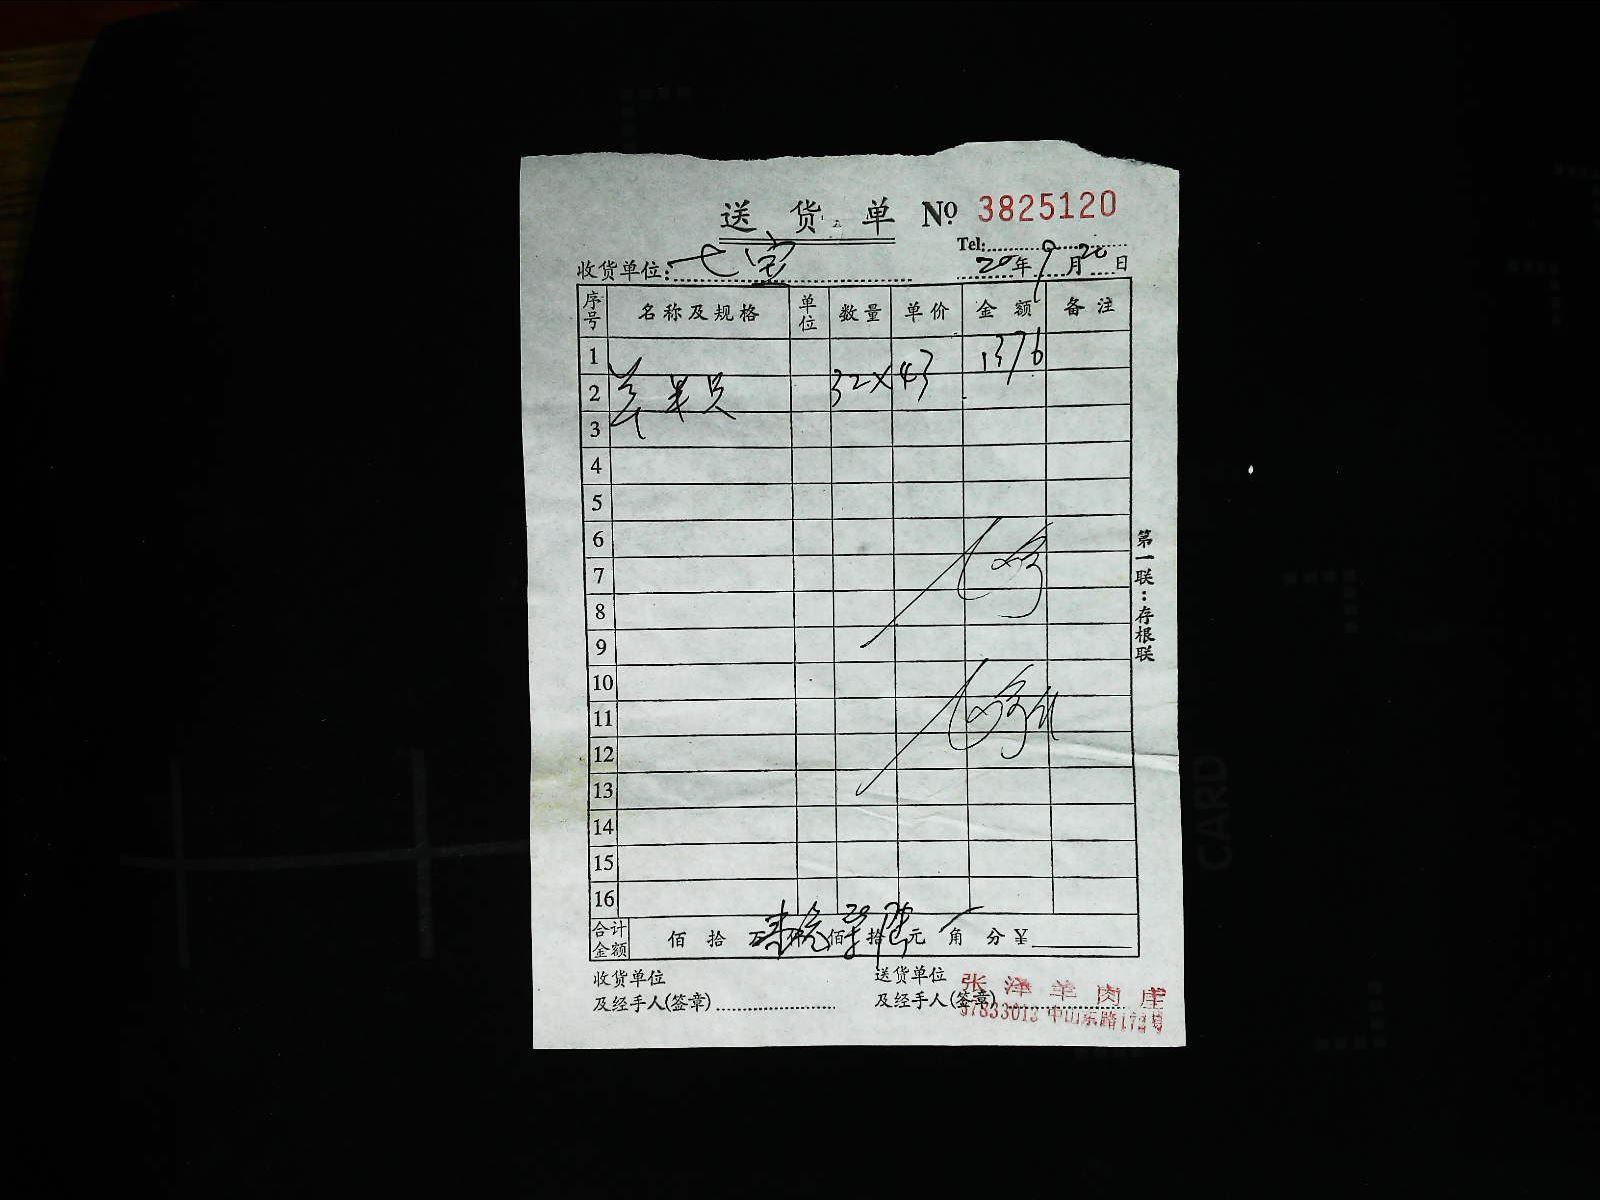 送 货 单 № 3825120
Tel:
收货单位: 七宝 20年9月20日
序号 名称及规格 单位 数量 单价 金额 备注
1 1376
2 羊 32×43
3
4
5
6
7
8
9
10
11
12
13
14
15
16
合计金额 佰 拾 万 仟 佰 拾 元 角 分 ¥
收货单位 送货单位
及经手人(签章) 及经手人(签章)
张泽羊肉庄
57833013 中山东路173号
第一联:存根联
CARD